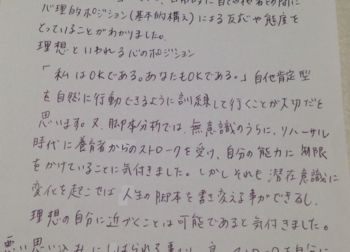 心理的ポジション(基本的構え)による反応や態度を
とっていることがわかりました。
理想といわれる心のポジション
「私はOKである。あなたもOKである。」自他肯定型
を自然に行動できるように訓練して行くことが大切だと
思います。又、脚本分析では、無意識のうちに、リハーサル
時代に養育者からのストロークを受け、自分の能力に制限
をかけていることに気付きました。しかしそれも潜在意識に
変化を起こせば 人生の脚本を書き変える事ができるし、
理想の自分に近づくことは可能であると気付きました。
悪い思い込みにしばられる事なく